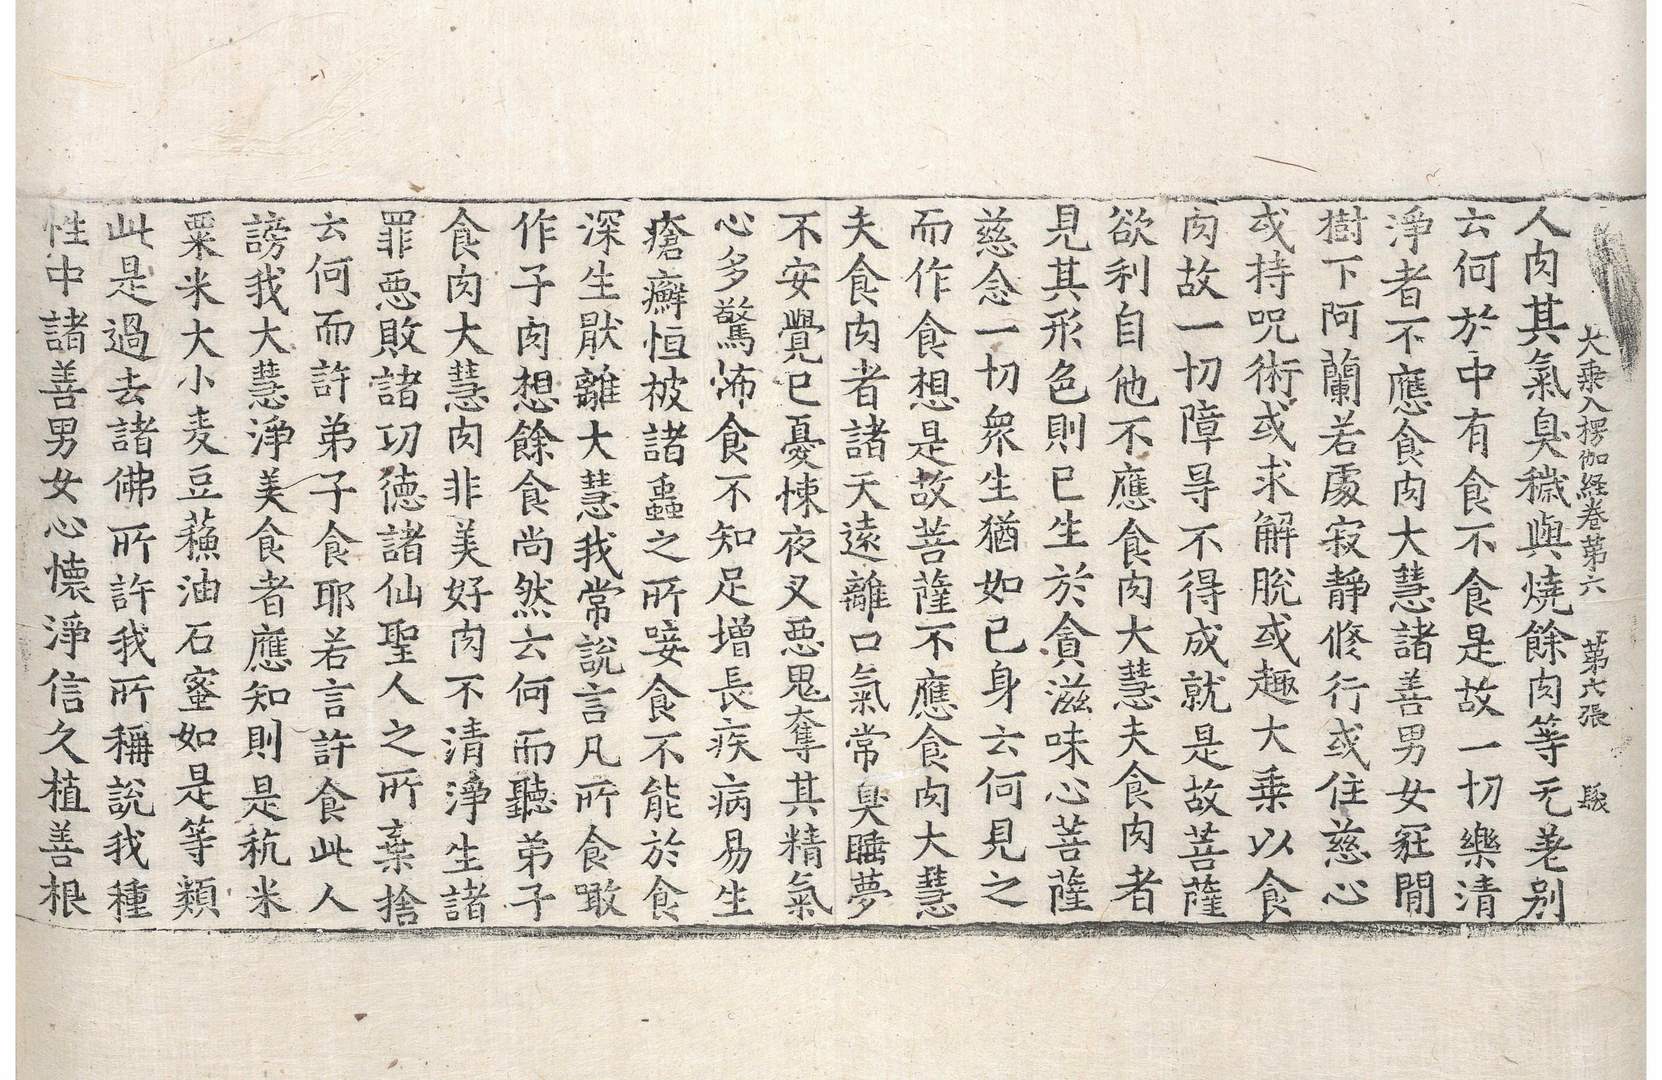 大乘入楞伽経卷第六 第六張
人肉其氣臭穢與燒餘肉等无差别
云何於中有食不食是故一切樂清
淨者不應食肉大慧諸善男女冡閒
樹下阿蘭若處寂靜修行或住慈心
或持呪術或求解脫或趣大乗以食
肉故一切障㝵不得成就是故菩薩
欲利自他不應食肉大慧夫食肉者
見其形色則已生於貪滋味心菩薩
慈念一切衆生猶如已身云何見之
而作食想是故菩薩不應食肉大慧
夫食肉者諸天遠離口氣常臭睡夢
不安覺已憂悚夜叉惡鬼奪其精氣
心多驚怖食不知足增長疾病易生
瘡癬恒被諸蟲之所唼食不能於食
深生猒離大慧我常說言凡所食噉
作子肉想餘食尚然云何而聽弟子
食肉大慧肉非美好肉不清淨生諸
罪惡敗諸功德諸仙聖人之所棄捨
云何而許弟子食耶若言許食此人
謗我大慧淨美食者應知則是秔米
粟米大小麦豆蘓油石蜜如是等類
此是過去諸佛所許我所稱說我種
性中諸善男女心懷淨信久植善根